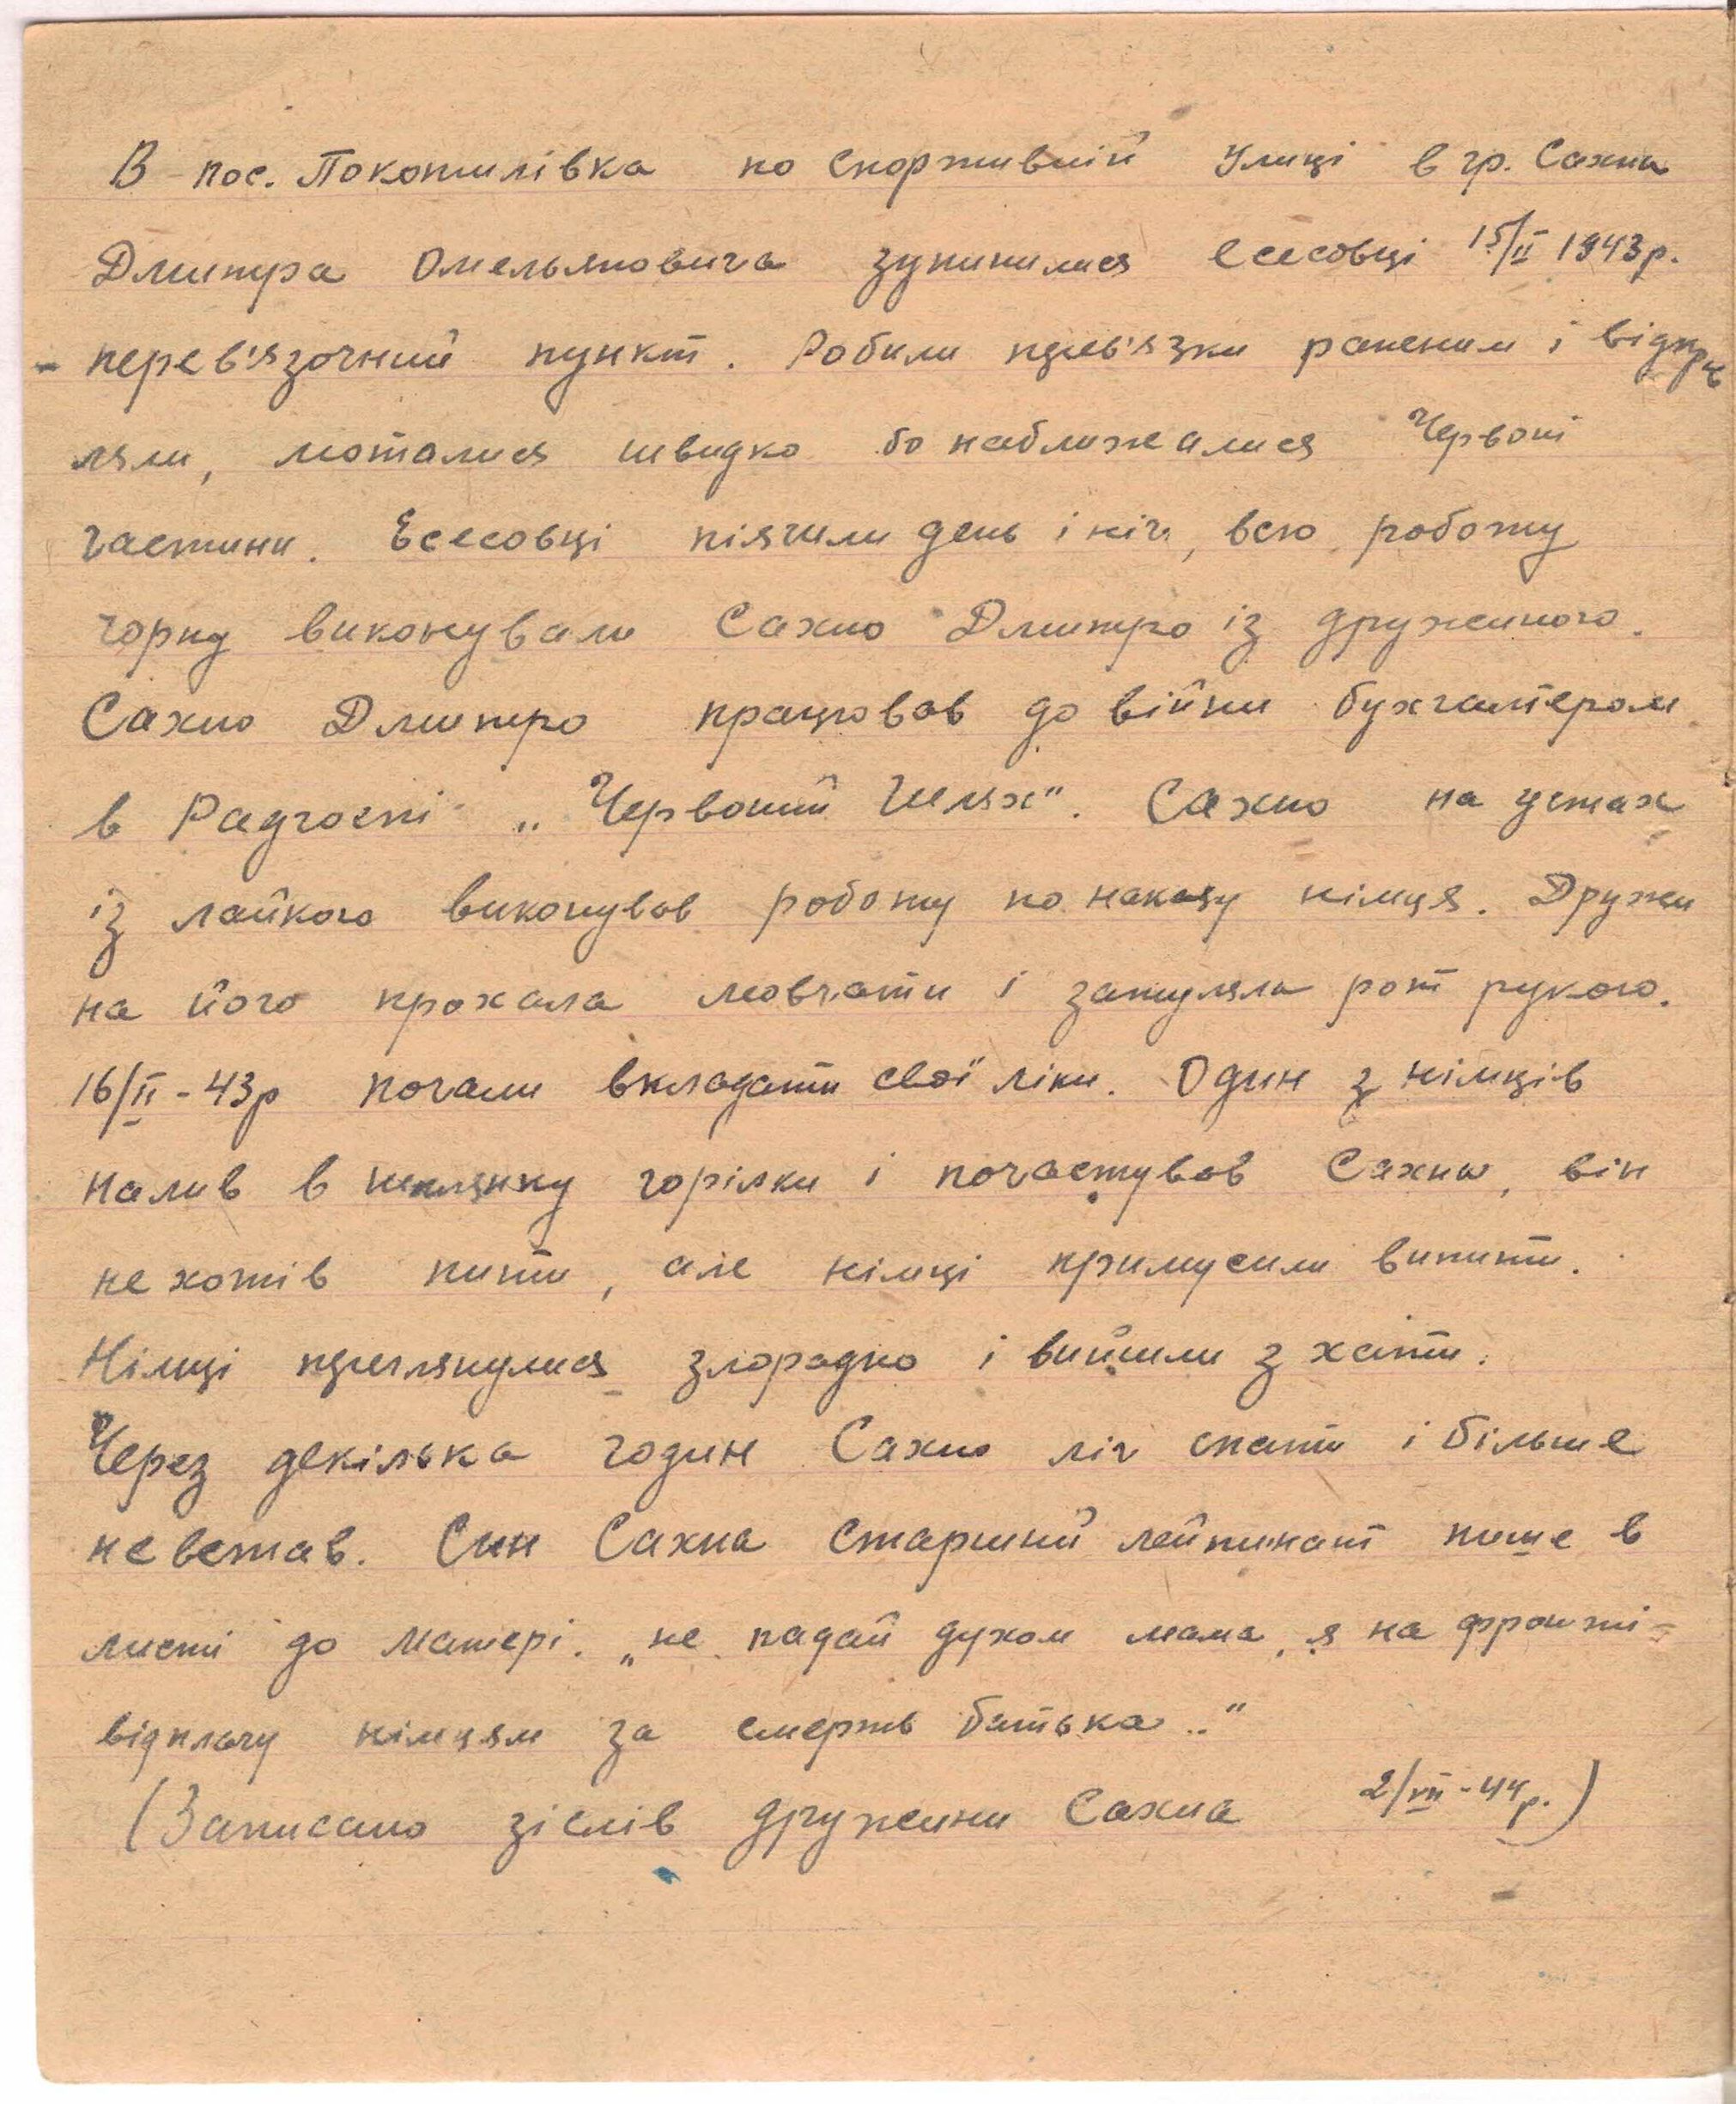 В пос. Покотилівка по спортивній Улиці в гр. Сахна
Дмитра Омельяновича зупинилися есесовці 15/II 1943р.
- перев'язочний пункт. Робили перев'язки раненим і відпра
ляли, моталися швидко бо наближалися Червоні
частини. Есесовці піячили день і ніч, всю роботу
чорну виконували Сахно Дмитро із дружиною.
Сахно Дмитро працював до війни бухгалтером
в Радгоспі „Червоний Шлях". Сахно на устах
із лайкою виконував роботу по наказу німця. Дружи
на його прохала мовчати і затуляла рот рукою.
16/II-43р почали вкладати свої ліки. Один з німців
налив в шклянку горілки і почастував Сахна, він
не хотів пити, але німці примусили випити.
Німці переглянулися злорадно і вийшли з хати.
Через декілька годин Сахно ліг спати і більше
не встав. Син Сахна Старший лейтинант пише в
листі до матері. „не падай духом мама, я на фронті-
відплачу німцям за смерть батька.."
(Записано зіслів дружини Сахна 2/VII-44р.)